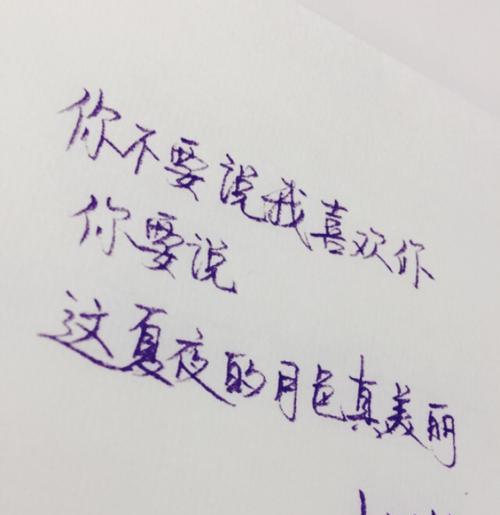 你不要说我喜欢你
你要说
这夏夜的月色真美丽